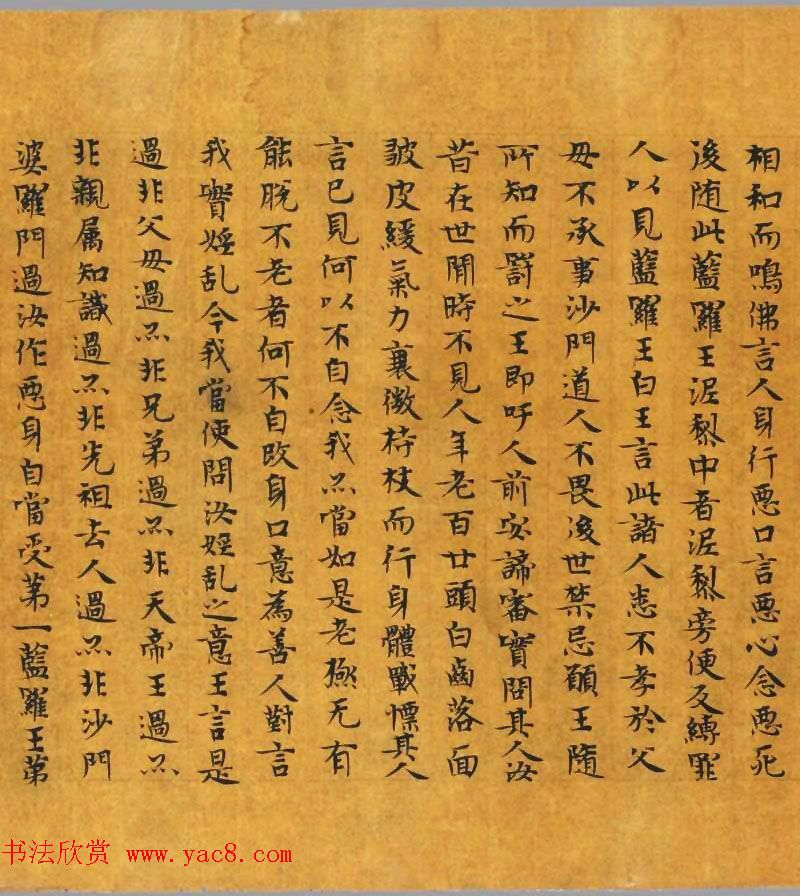 相和而鳴佛言人身行惡口言惡心念惡死
後随此藍羅王泥犁中音泥犁旁便反縛罪
人以見藍羅王白王言此諸人悉不孝於父
母不承事沙門道人不畏後世禁忌願王隨
所知而罰之王即呼人前安諦審實問其人汝
昔在世間時不見人年老百廿頭白齒落面
皺皮緩氣力襄微持杖而行身體戰慄其人
言已見何以不自念我亦當如是老極无有
能脱不老者何不自改身口意為善人對言
我實婬乱今我當便問汝婬乱之意王言是
過非父母過亦非兄弟過亦非天帝王過亦
非親属知識過亦非先祖去人過亦非沙門
婆羅門過汝作惡身自當受第一藍羅王第
书法欣赏 www.yac8.com